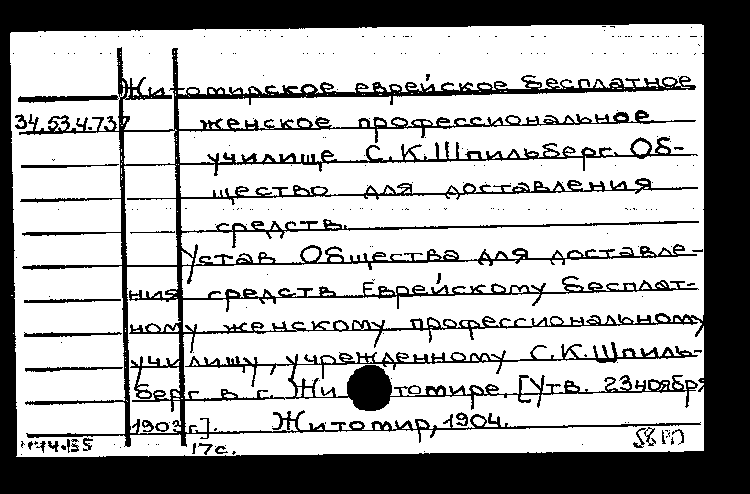 Житомирское еврейское бесплатное
34.53.4.737 женское профессиональное
училище С.К.Шпильберг. Об-
щество для доставления
средств.
Устав Общества для доставле-
ния средств Еврейскому бесплат-
ному женскому профессиональному
училищу, учрежденному С.К.Шпиль-
берг в г. Житомире. [Утв. 23 ноября
1903 г.]. Житомир, 1904.
17с.